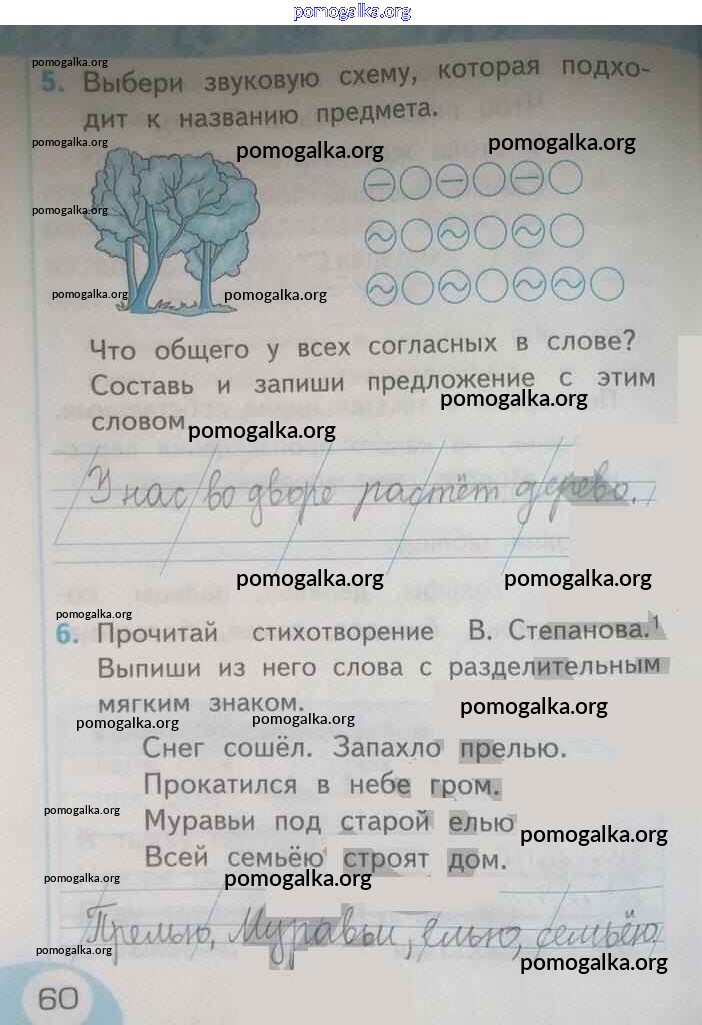 pomogalka.org
pomogalka.org
5. Выбери звуковую схему, которая подхо-
дит к названию предмета.
pomogalka.org pomogalka.org pomogalka.org
pomogalka.org
pomogalka.org pomogalka.org
Что общего у всех согласных в слове?
Составь и запиши предложение с этим
pomogalka.org
словом.
pomogalka.org
У нас во дворе растёт дерево.
pomogalka.org pomogalka.org
pomogalka.org
6. Прочитай стихотворение В. Степанова.1
Выпиши из него слова с разделительным
мягким знаком.
pomogalka.org pomogalka.org pomogalka.org
Снег сошёл. Запахло прелью.
Прокатился в небе гром.
pomogalka.org
Муравьи под старой елью
pomogalka.org
Всей семьёю строят дом.
pomogalka.org pomogalka.org
Прелью, Муравьи, елью, семьёю
pomogalka.org pomogalka.org
60